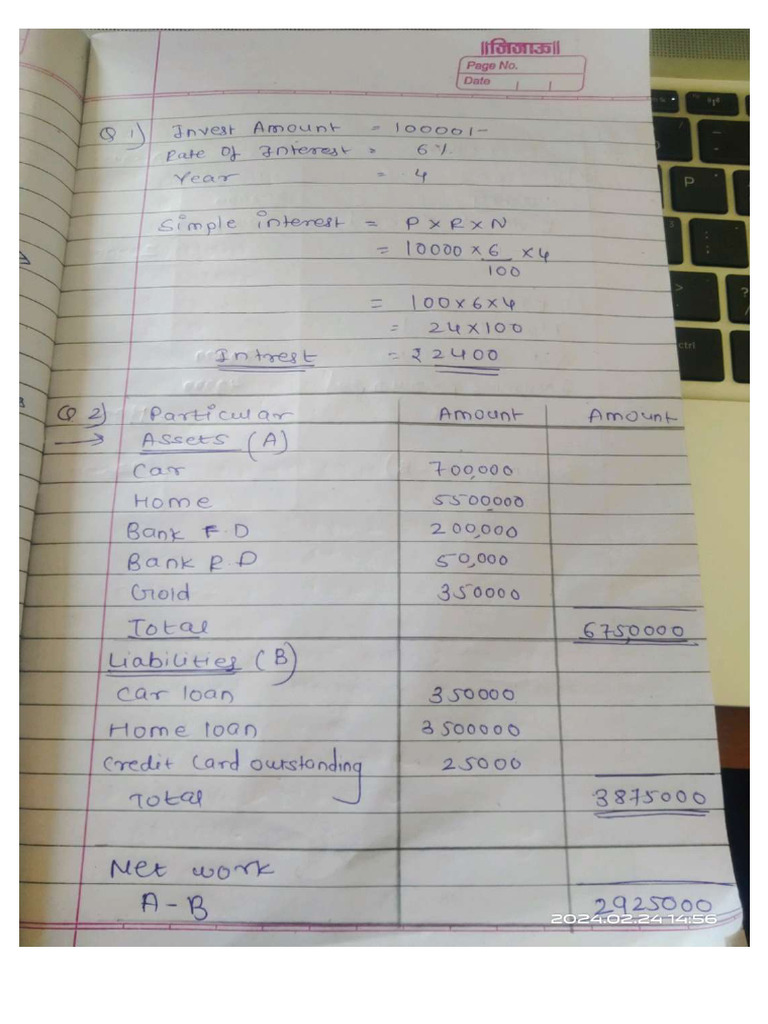 ॥जिजाऊ॥
Page No.
Date
Q 1) Invest Amount = 10000/-
Rate Of Interest = 6%
Year = 4
Simple interest = P × R × N
= 10000 × 6 × 4
100
= 100 × 6 × 4
= 24 × 100
Intrest = ₹ 2400
Q 2) Particular Amount Amount
→ Assets (A)
Car 700,000
Home 5500000
Bank F.D 200,000
Bank R.D 50,000
Gold 350000
Total 6750000
Liabilities (B)
Car loan 350000
Home loan 3500000
Credit Card outstanding 25000
Total 3875000
Net work
A - B 2925000
2024.02.24 14:56
P
ctrl